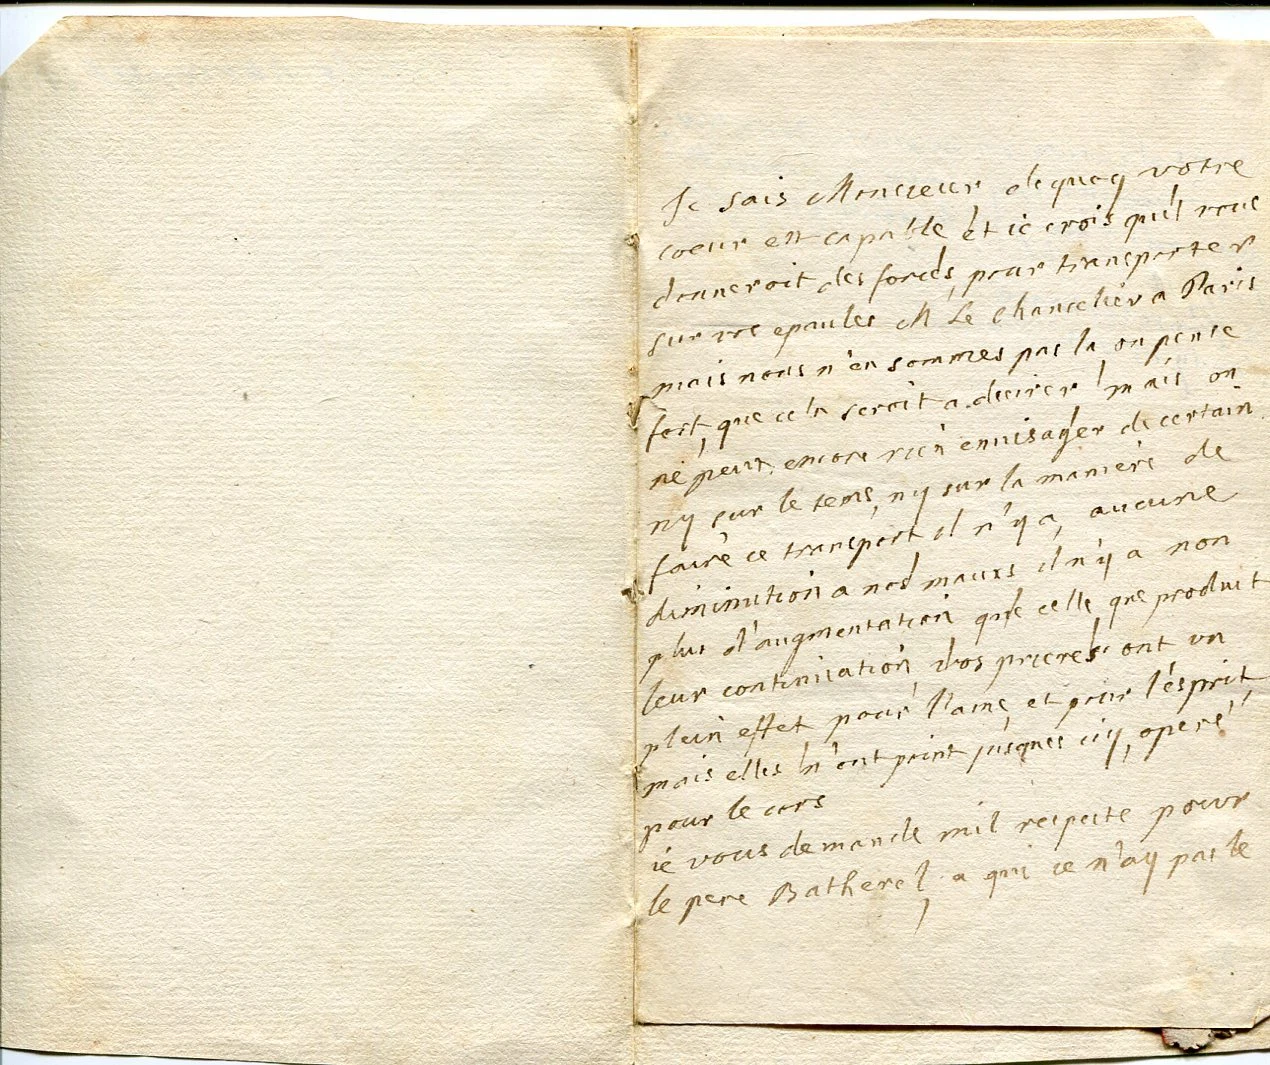 Je sais Monsieur de quoy votre
coeur est capable et ie crois qu'il vous
donneroit des forces, pour transporter
sur vos epaules Mr Le Chancelier a Paris
mais nous n'en sommes pas la on pense
fort, que cela seroit a desirer mais on
ne peut, encore rien enuisager de certain
ny sur le tems, ny sur la maniere de
faire ce transport il n'y a, aucune
diminution a nos maux il n'y a non
plus d'augmentation que celle que produit
leur continuation, vos prieres ont un
plein effet pour l'ame, et pour l'esprit
mais elles n'ont point jusques icy, operé
pour le cors
ie vous demande mil respects pour
le pere Batherel, a qui ie n'ay pas le